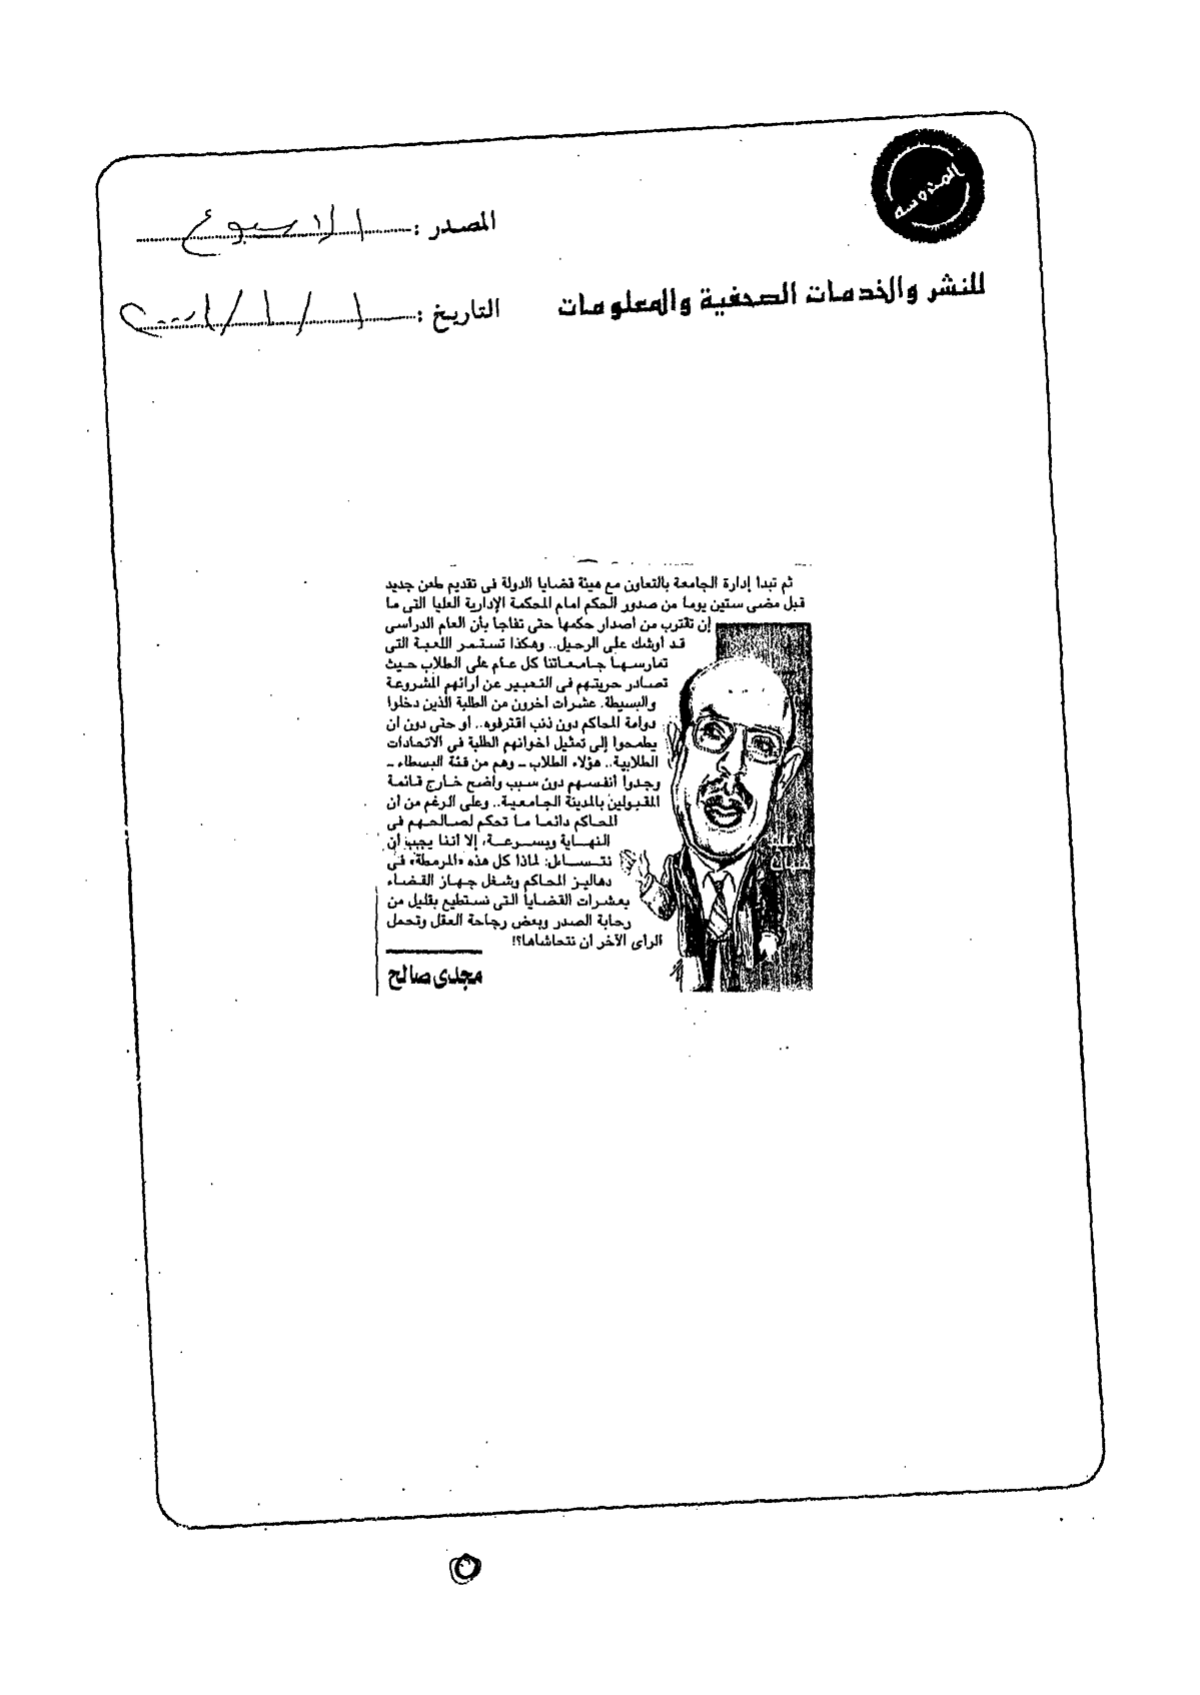 المحروسة
المصدر : الاسبوع
للنشر والخدمات الصحفية والمعلومات
التاريخ : ١ / ١ / ٢٠٠١
ثم تبدأ إدارة الجامعة بالتعاون مع هيئة قضايا الدولة فى تقديم طعن جديد
قبل مضى ستين يوما من صدور الحكم امام المحكمة الإدارية العليا التى ما
إن تقترب من اصدار حكمها حتى تفاجأ بأن العام الدراسى
قد أوشك على الرحيل.. وهكذا تستمر اللعبة التى
تمارسها جامعاتنا كل عام على الطلاب حيث
تصادر حريتهم فى التعبير عن آرائهم المشروعة
والبسيطة. عشرات آخرون من الطلبة الذين دخلوا
دوامة المحاكم دون ذنب اقترفوه.. أو حتى دون أن
يطمحوا إلى تمثيل اخوانهم الطلبة فى الاتحادات
الطلابية.. هؤلاء الطلاب ــ وهم من فئة البسطاء ــ
وجدوا أنفسهم دون سبب واضح خارج قائمة
المقبولين بالمدينة الجامعية.. وعلى الرغم من أن
المحاكم دائما ما تحكم لصالحهم فى
النهاية وبسرعة، إلا أننا يجب أن
نتساءل: لماذا كل هذه «المرمطة» فى
دهاليز المحاكم وشغل جهاز القضاء
بعشرات القضايا التى نستطيع بقليل من
رحابة الصدر وبعض رجاحة العقل وتحمل
الرأى الآخر أن نتحاشاها؟!
مجدى صالح